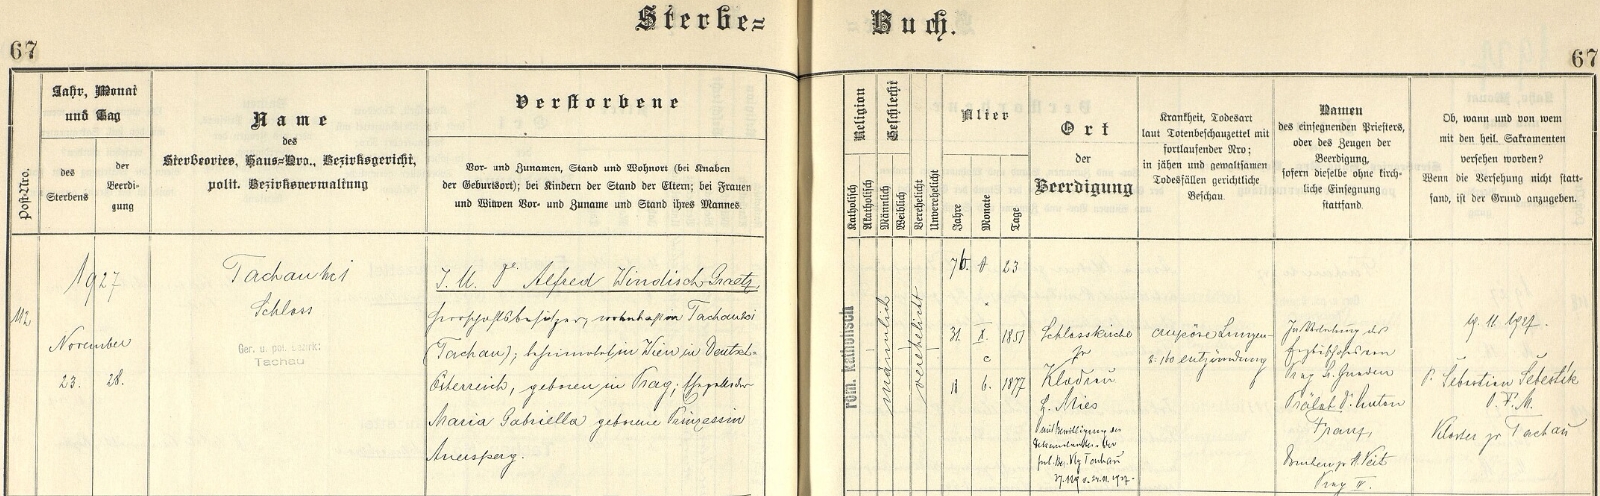 Sterbe=
Buch.
67
67
Jahr, Monat
und Tag
Post-Nro.
des
Sterbens
der
Beerdi-
gung
Name
des
Sterbeortes, Haus=Nro., Bezirksgericht,
polit. Bezirksverwaltung
Verstorbene
Vor- und Zunamen, Stand und Wohnort (bei Knaben
der Geburtsort); bei Kindern der Stand der Eltern; bei Frauen
und Witwen Vor- und Zuname und Stand ihres Mannes.
Religion
Geschlecht
Katholisch
Akatholisch
Männlich
Weiblich
Verehelicht
Unverehelicht
Alter
Jahre
Monate
Tage
Ort
der
Beerdigung
Krankheit, Todesart
laut Totenbeschauzettel mit
fortlaufender Nro;
in jähen und gewaltsamen
Todesfällen gerichtliche
Beschau.
Namen
des einsegnenden Priesters,
oder des Zeugen der
Beerdigung,
sofern dieselbe ohne kirch-
liche Einsegnung
stattfand.
Ob, wann und von wem
mit den heil. Sakramenten
versehen worden?
Wenn die Versehung nicht statt-
fand, ist der Grund anzugeben.
112
1927
November
23. 28.
Tachau
Schloss
Ger. u. pol. Bezirk:
Tachau
Dr Alfred Windisch-Graetz,
Herrschaftsbesitzer, wohnhaft in
(Tachau); beheimatet in Wien in Deutsch-
Österreich, geboren in Prag; Ehegatte der
Maria Gabriella geborene Prinzessin
Auersperg.
röm. katholisch
männlich
verehelicht
76 23
31. X. 1851
6. 1877
Schlosskirche
zu
Kladrau
b. Mies
Tachau
Lungen-
entzündung
In Vertretung des
Erzbischofs von
Prag
Prälat Dr. Anton
Franz,
St. Veit
Prag IV.
19. 11. 1927.
P. Sebastian Šebestík
O. F. M.
Kloster zu Tachau